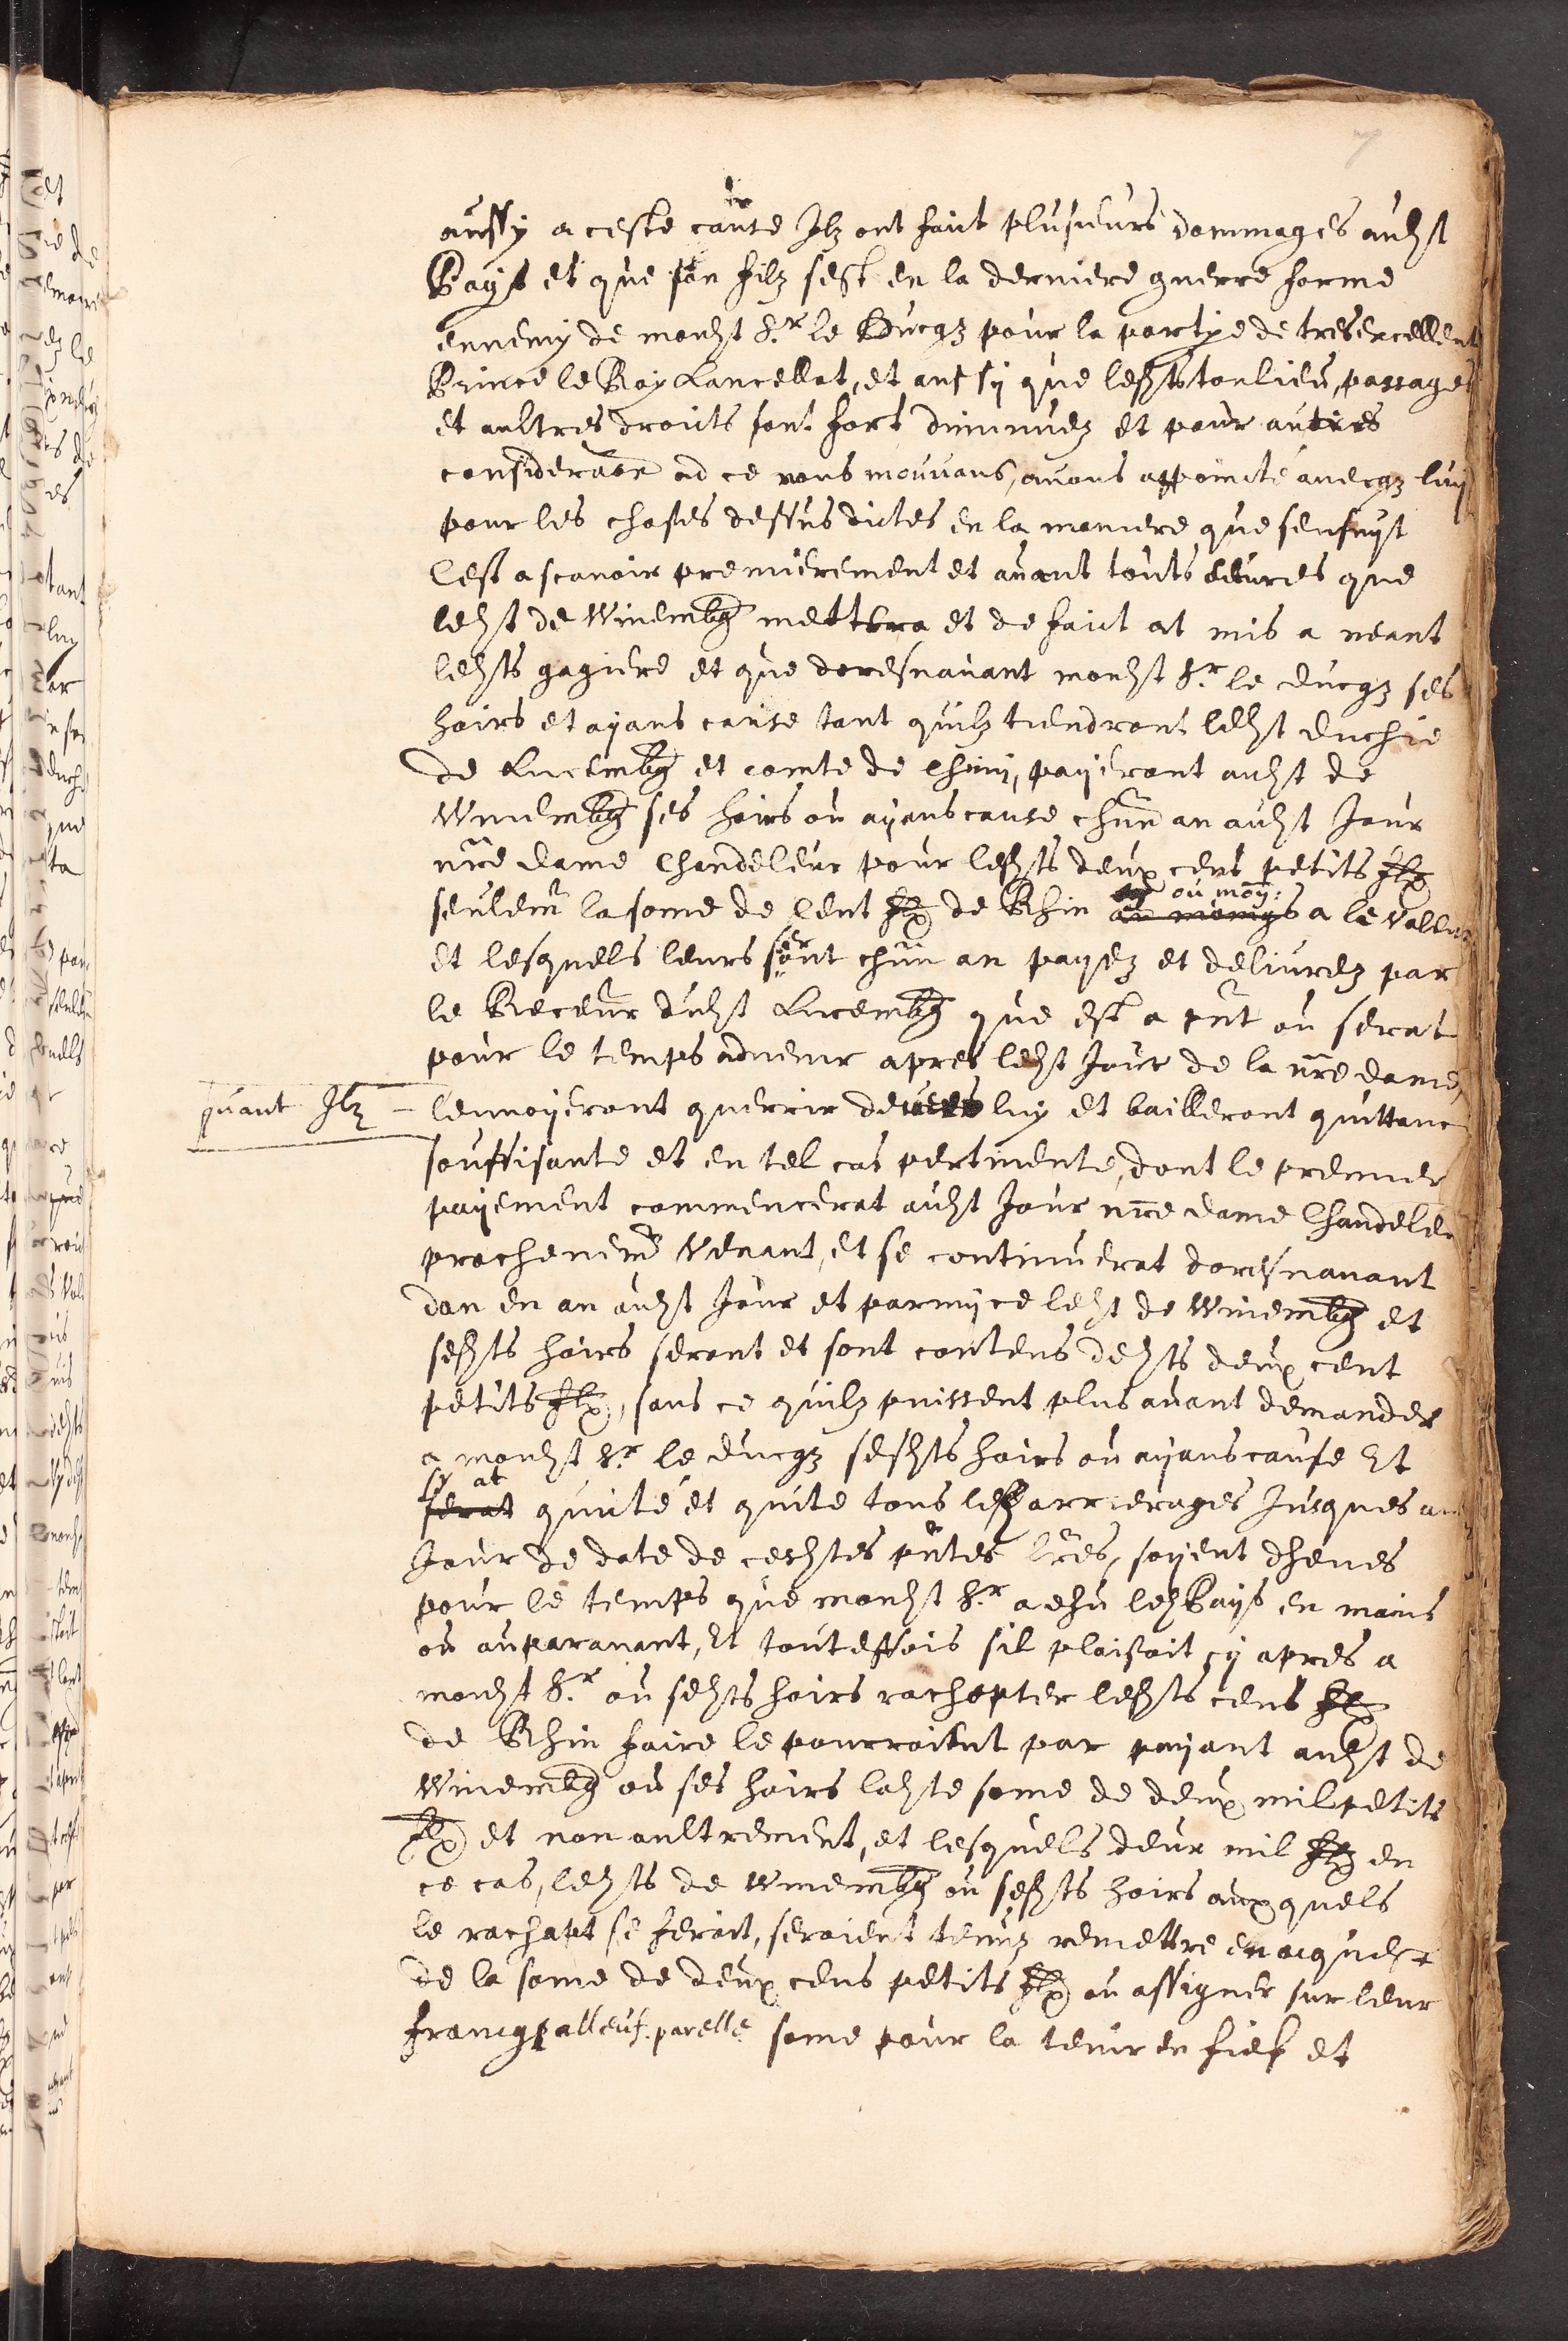 7
aussy a ceste cause Ilz ont faict plusieurs dommages audst
Pays et que son filz sest en la derniere guerre forme
ennemy de mondst Sr. le Ducqz pour la partye de tresexcellent
Prince le Roy Lancellot, et aussy que lesdsts tonlieu, passages
et aultres droicts sont fort diminuez et pour autres
consideraon ad ce nous mouvans, avons appoincté avecqz luy
pour les choses dessus dictes en la maniere que sensuyt
Cest a scavoir premierement et avant touts oeuvres que
ledst de Winembg mettera et de faict at mis a neant
ledsts gagiere et que doresnavant mondst Sr. le ducqz ses
hoirs et ayans cause tant quilz tiendront ledst duchie
de Lucembg et comte de Chiny, payeront audst de
Winembg ses hoirs ou ayans cause chun an audst Jour
nre dame Chandeleur pour lesdsts deux cens petits flx
seulemt la some de Cent flx de Rhin au moings ou moy: a le valleur
et lesquels leurs seront chun an payez et delivrez par
le Receur dudst Lucembg que est a pnt ou serat
pour le temps advenir apres ledst Jour de la nre dame,
quant Ilz – lenvoyeront querrir devers luy et bailleront quittance
souffisante et en tel cas pertinente, dont le premier
payement commencerat audst Jour nre dame Chandeleur
prochenemt venant, et se continuerat doresnavant
dan en an audst Jour et parmy ce ledst de Winembg et
sesdsts hoirs seront et sont contens desdsts deux cent
petits flx, sans ce quilz puissent plus avant demander
a mondst Sr. le ducqz sesdsts hoirs ou ayans cause Et
serat sy at quicté et quite tous les arrierages Jusques au
Jour de date de cesdstes pntes lres, soyent dheues
pour le temps que mondst Sr. a ehu led Pays en mains
ou auparavant, Et touteffois sil plaisoit cy apres a
mondst Sr. ou sesdsts hoirs rachepter lesdsts cens flx
de Rhin faire le pourroient par payant audst de
Winembg ou ses hoirs ladste some de deux mil petits
flx et non aultrement, et lesquels deux mil flx en
ce cas, ledsts de Winembg ou sesdsts hoirs auxquels
le rachapt se feroit, seroient tenuz remettre en acquest
de la some de deux cens petits flx ou assigner sur leur
francq alleuf. parelle some pour la tenir en fief et